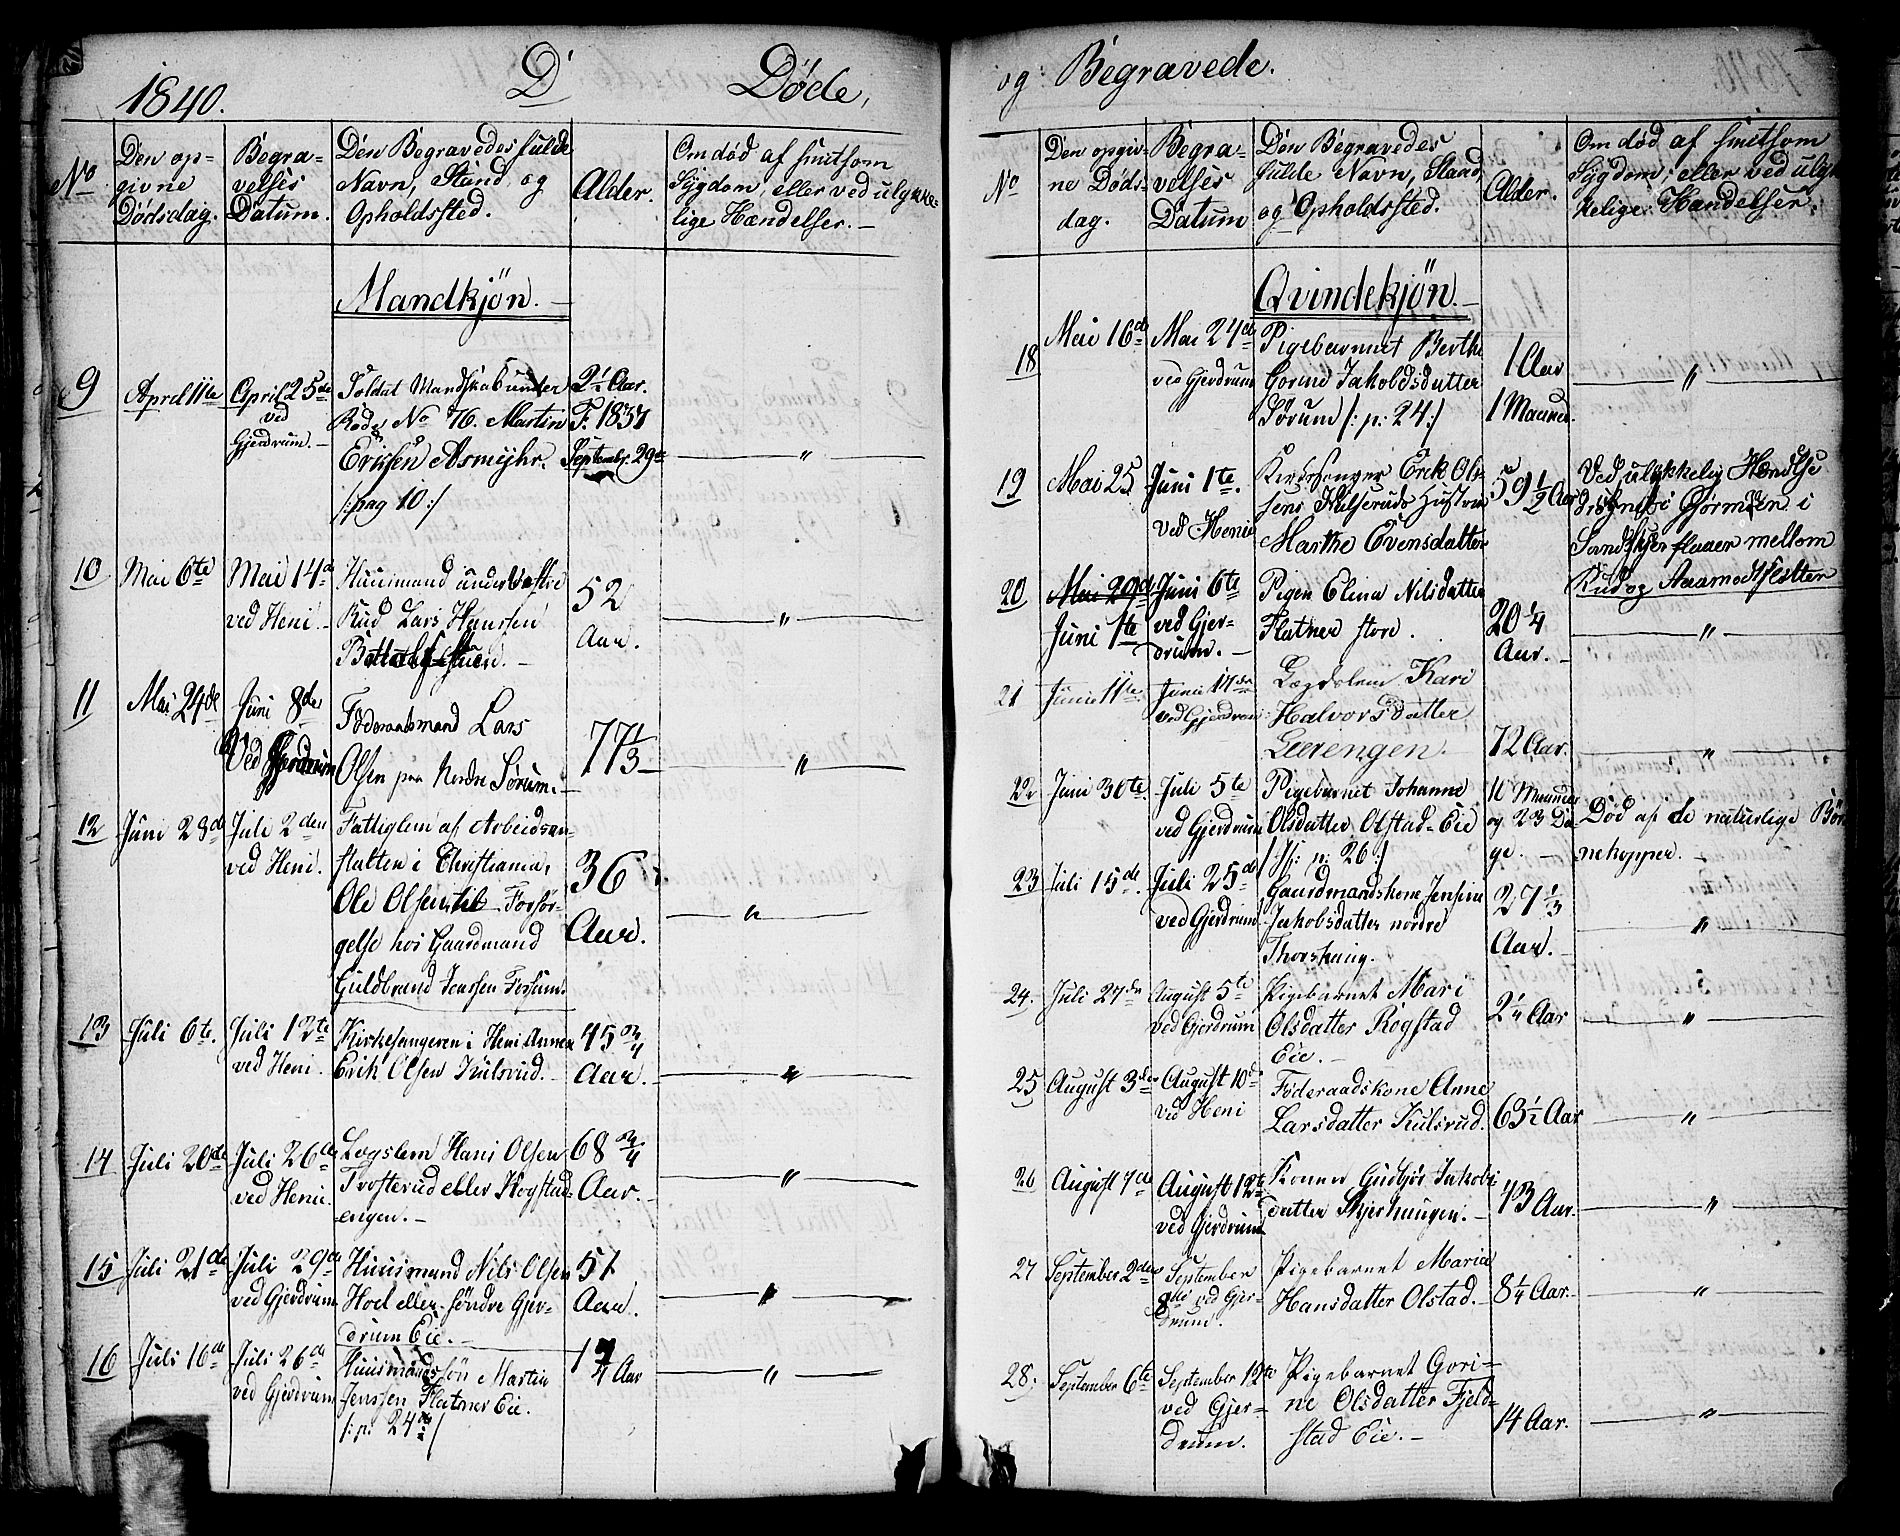 1840.
D
Døde,
No
Den op-
givne
Dødsdag.
Begra-
velses
Datum.
Den Begravedes fulde
Navn, Stand, og
Opholdssted.
Alder.
Om død af smitsom
Sygdom, eller ved ulykke-
lige Hændelser. -
Mandkjön. -
9
April 11te
April 25de
ved
Gjerdrum. -
Soldat Mandskab under
Rode No 76. Martin
Erissen Asmyhr.
/: pag 10 :/
2½ Aar.
F. 1837
Septembr. 29de
"
10
Mai 6te
Mai 14d
ved Heni. -
Huusmand under
Rud Lars Hansen
52
Aar.
"
11
Mai 24de
Juni 8de
Ved Gjerdrum
Föderaadsmand Lars
Olsen paa Nordre Sørum. -
77⅓
"
12
Juni 23d
Juli 2den
ved Heni.
Fattiglem af Arbeidsan-
stalten i Christiania,
Ole Olsen, til Forsør-
gelse hos Gaardmand
Guldbrand Jenssen Fossum.
36
Aar.
"
13
Juli 6te.
Juli 12te
ved Heni.
Kirkesangeren i Heni Annex
Erik Olsen Kulsrud. -
45¾
Aar. -
"
14
Juli 20de
Juli 26de
ved Heni.
Logslem Hans Olsen
Trosterud eller Kogstad-
engen. -
68¾
Aar. -
"
15
Juli 21de
Juli 29de
ved Gjerdrum
Huusmand Nils Olsen
Hoel eller söndre Gjer-
drum Eie. -
51
Aar.
"
16
Juli 16de
Juli 26de
ved Gjerdrum
Huusmandssön Martin
Jenssen Flatner Eie.
/: p: 24 :/
1¾ Aar
"
og: Begravede.
No
Den opgiv-
ne Døds-
dag.
Begra-
velses
Datum
Den Begravedes
fulde Navn, Stand
og Opholdssted.
Alder.
Om død af smitsom
Sygdom, eller ved ulyk-
kelige Hændelser.
Qvindekjön. -
18
Mai 16de
Mai 24de
ved Gjerdrum
Pigebarnet Berthe
Gorine Jakobsdatter
Sørum /: p: 24 :/
1 Aar
1 Maaned.
"
19
Mai 25
Juni 1te.
ved Henie
Kirkesanger Erik Ol-
sens Kulsruds Hustrue
Marthe Evensdatter
59½ Aar
Ved ulykkelig Hændelse
druknet i Gjörmen i
mellom
Rud og Aamodt
20
Mai 29de
Juni 1te
Juni 6te
ved Gjer-
drum. -
Pigen Elina Nilsdatter
Flatner store.
20¼
Aar. -
"
21
Juni 11te.
Juni 17de
ved Gjerdrum
Lægdslem Kari
Halvorsdatter
Leerengen.
72 Aar.
"
22
Juni 30te.
Juli 5te
ved Gjerdrum
Pigebarnet Johanne
Olsdatter Olstad-Eie
/: p: 26 :/
10 Maaneder
og 23 Da-
ge. -
Død af de naturlige Bør-
nekopper. -
23
Juli 15de.
Juli 25de
ved Gjerdrum
Gaardmandskone Jensine
Jakobsdatter nordre
Thorshaug.
27⅓
Aar. -
"
24.
Juli 27de
August 5te
ved Gjerdrum
Pigebarnet Mari
Olsdatter Rogstad
Eie. -
2¼ Aar
"
25
August 3de
August 10de
ved Heni
Föderaadskone Anne
Larsdatter Kulsrud.
63½ Aar
"
26
August 7de
August 12te
ved Gjerdrum
Konen Gudbjör Jakobs
datter Skjerhaugen. -
73 Aar.
"
27
September 2den
September
8de ved Gjer-
drum.
Pigebarnet Maria
Hansdatter Olstad. -
8¼ Aar.
"
28.
September 6te
September 12te
ved Gjer-
drum.
Pigebarnet Gori-
ne Olsdatter Fjeld-
stad Eie. -
14 Aar.
"